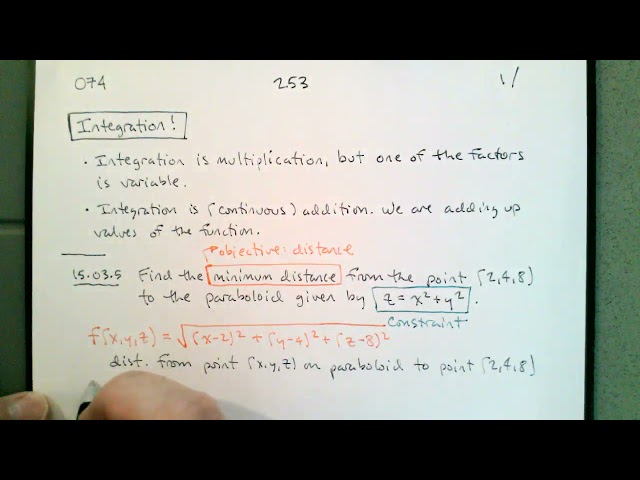 074 253 1/
Integration!
• Integration is multiplication, but one of the factors
is variable.
• Integration is (continuous) addition. We are adding up
values of the function.
objective: distance
15.03.5 Find the minimum distance from the point (2,4,8)
to the paraboloid given by z = x² + y².
Constraint
f(x,y,z) = √(x-2)² + (y-4)² + (z-8)²
dist. from point (x,y,z) on paraboloid to point (2,4,8)